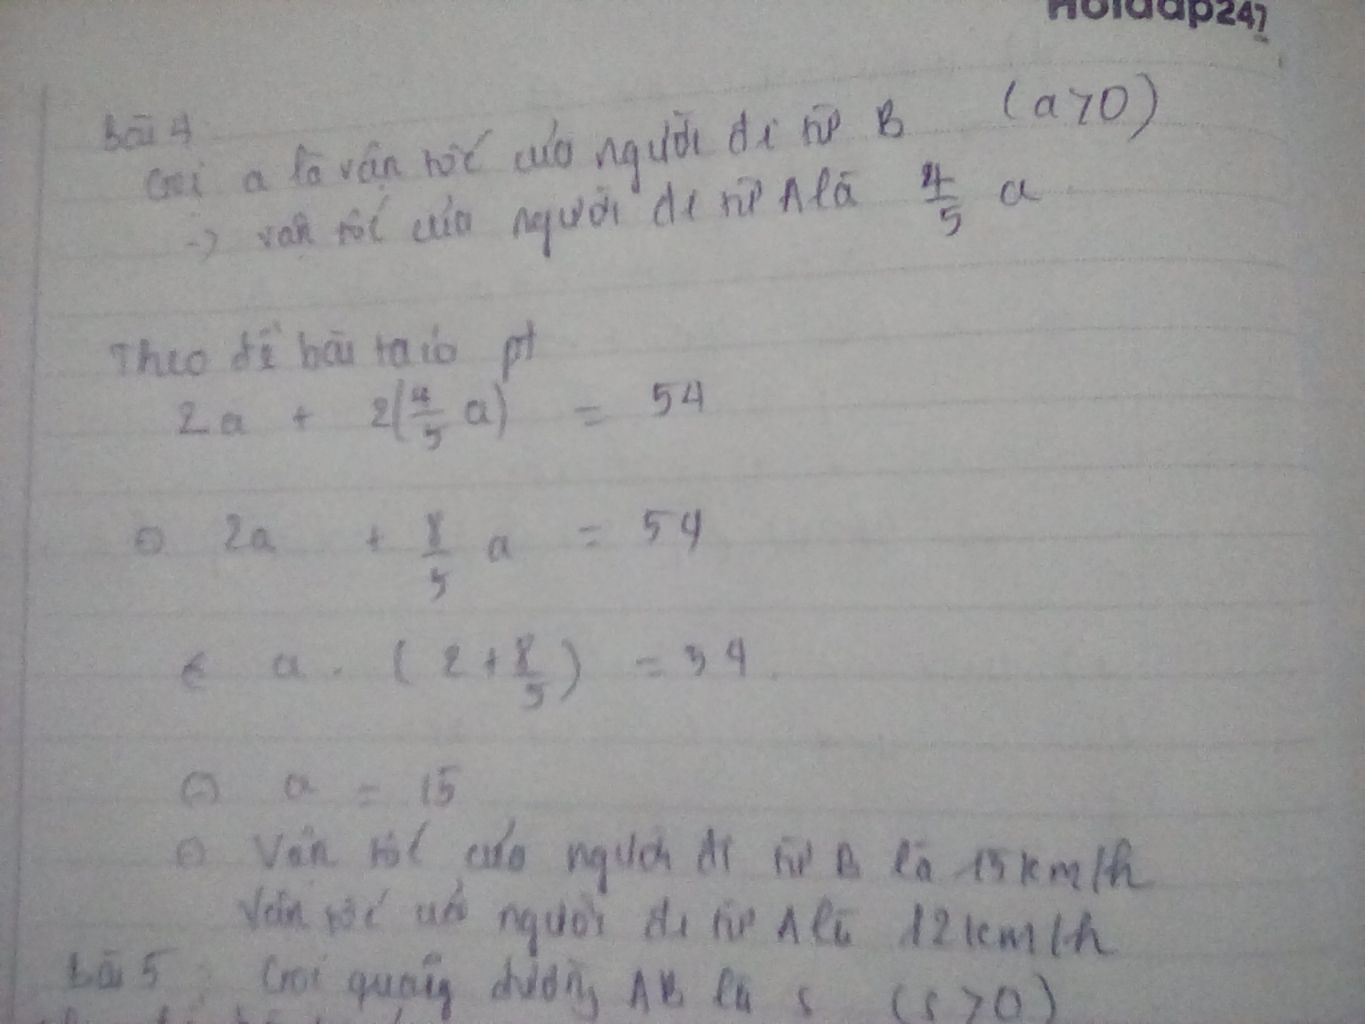 Hoidap247
Bài 4
Gọi a là vận tốc của người đi từ B (a>0)
-> vận tốc của người đi từ A là 4/5 a
Theo đề bài ta có pt
2a + 2(4/5 a) = 54
⇔ 2a + 8/5 a = 54
⇔ a . (2+8/5) = 54
⇔ a = 15
⇔ Vận tốc của người đi từ B là 15km/h
Vận tốc của người đi từ A là 12km/h
Bài 5: Gọi quãng đường AB là s (s>0)